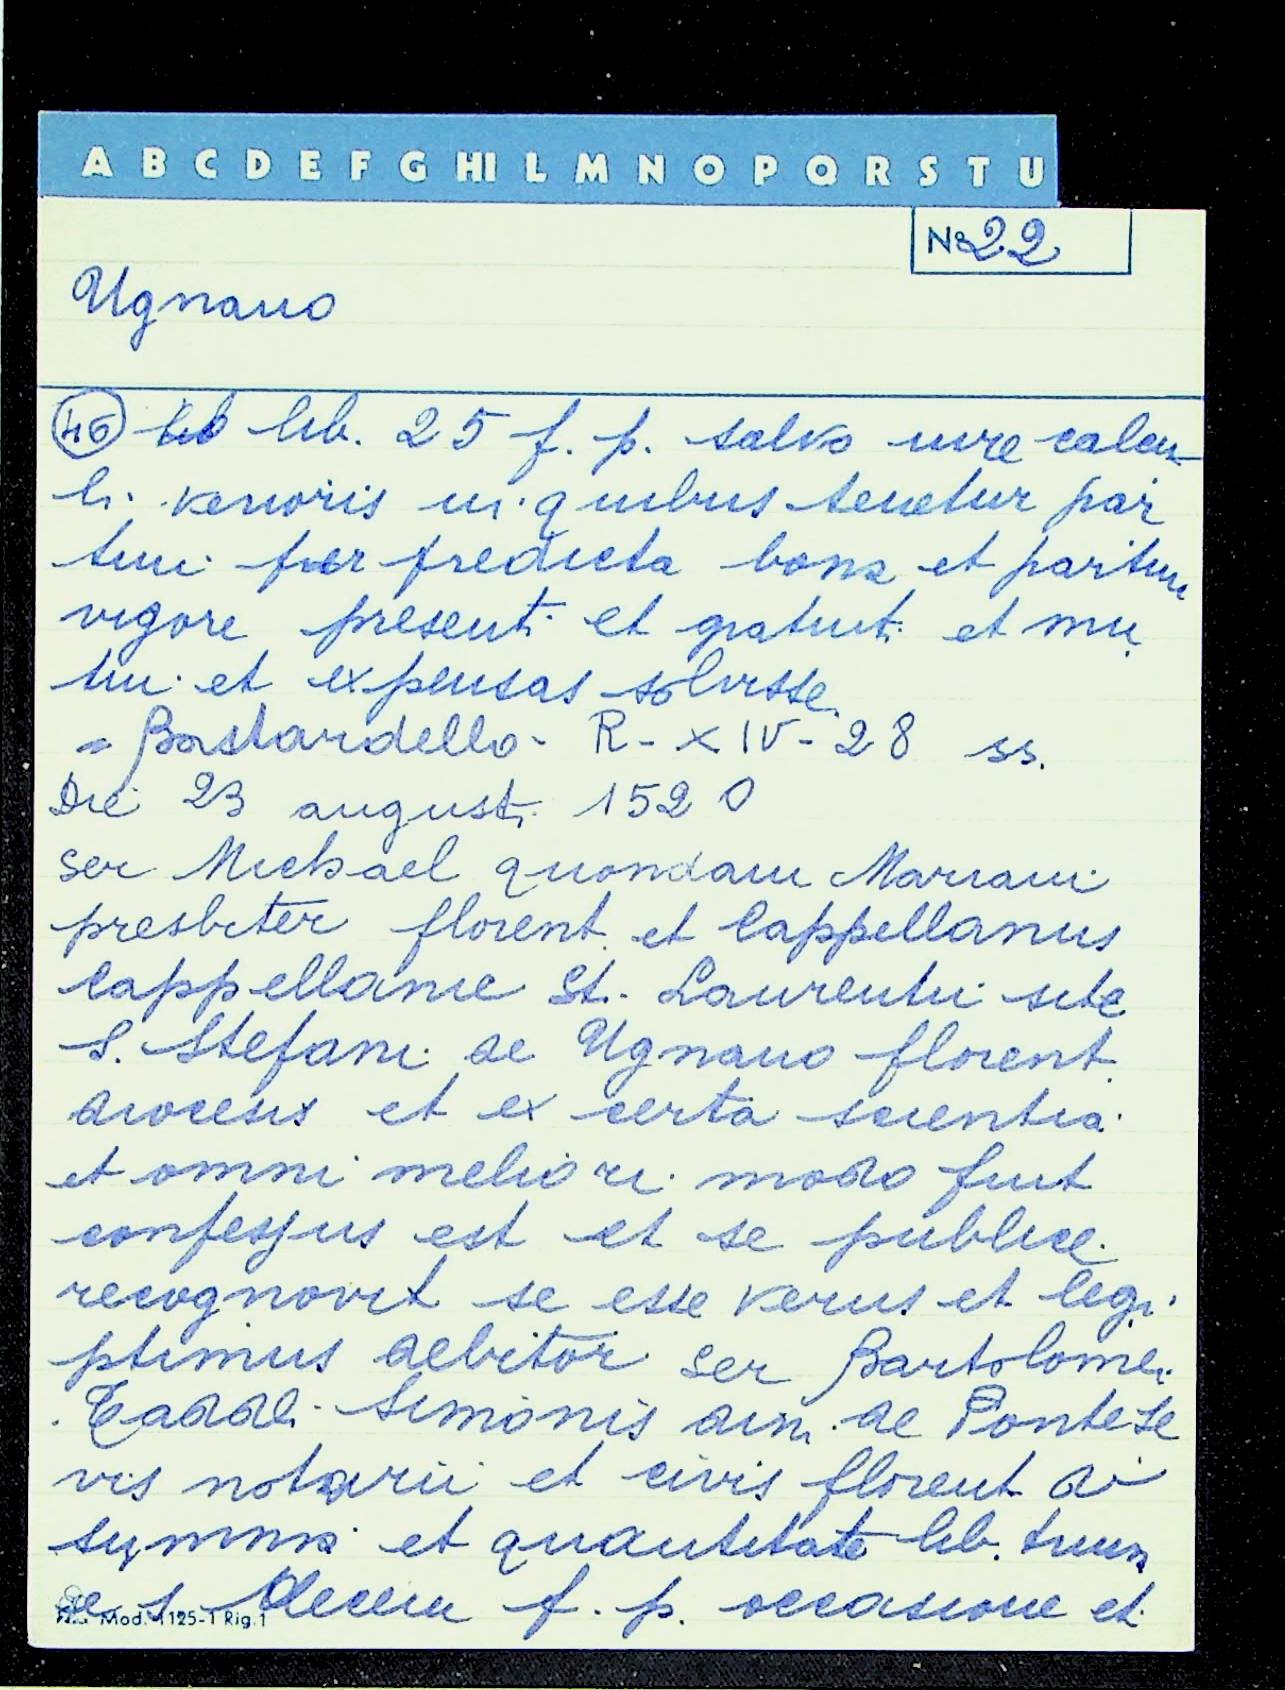 A B C D E F G HI L M N O P Q R S T U
No 22
Ugnano
46 lib. 25 f. p. salvo iure calcu
li venoris in quibus tenetur par
tim per predicta bona et partim
vigore presenti et gratuit. et mu
tui et expensas solvisse.
= Bastardello - R - XIV - 28 ss.
Die 23 augusti 1520
Ser Michael quondam Mariani
presbiter florent. et Cappellanus
Cappellanie St. Laurentii site
S. Stefani de Ugnano florent.
diocesis et ex certa scientia
et omni meliori modo fuit
confessus est et se publice
recognovit se esse verus et legi
ptimus debitor ser Bartolomei
Taddei Simonis de Pontese
vis notarii et civis florent. di
summa et quantitate lib.
s. decem f. p. occasione et
Mod. 1125-1 Rig. 1